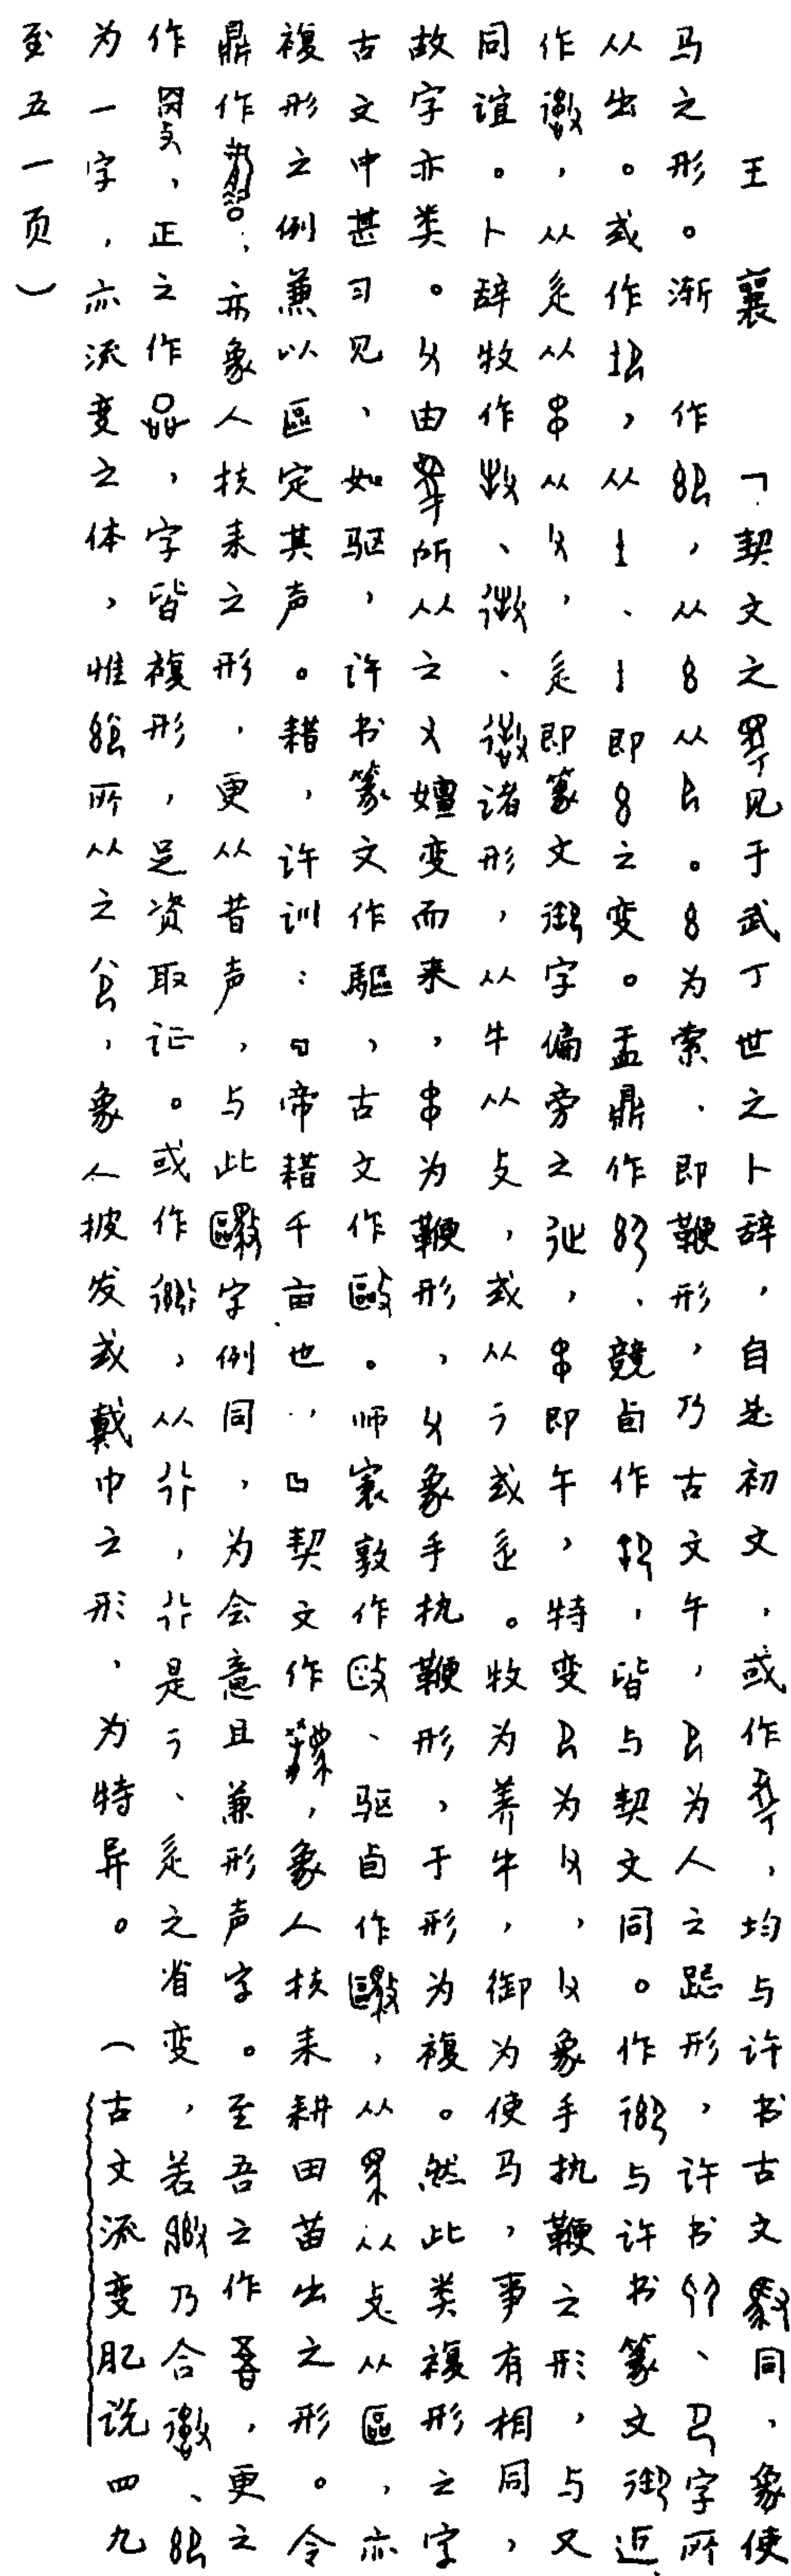 王襄 「契文之见于武丁世之卜辞，自是初文，或作，均与许书古文同，象使
马之形。渐作，从从。为索，即鞭形，乃古文午，为人之跽形，许书、字所
从出。或作，从、即之变。盂鼎作、競卣作，皆与契文同。作与许书篆文御近
作，从辵从从，辵即篆文御字偏旁之，即午，特变为，象手执鞭之形，与又
同谊。卜辞牧作、、诸形，从牛从攴，或从彳或辵。牧为养牛，御为使马，事有相同，
故字亦类。由所从之嬗变而来，为鞭形，象手执鞭形，于形为複。然此类複形之字
古文中甚习见，如驱，许书篆文作驅，古文作敺。师寰敦作敺、驱卣作，从从攴从區，亦
複形之例兼以區定其声。耤，许训：『帝耤千亩也』，契文作，象人扶耒耕田苗出之形。令
鼎作，亦象人扶耒之形，更从昔声，与此字例同，为会意且兼形声字。至吾之作，更之
作，正之作，字皆複形，足资取证。或作，从，是彳、辵之省变，若乃合、
为一字，亦流变之体，惟所从之，象人披发或戴巾之形，为特异。（古文流变肊说四九
至五一页）